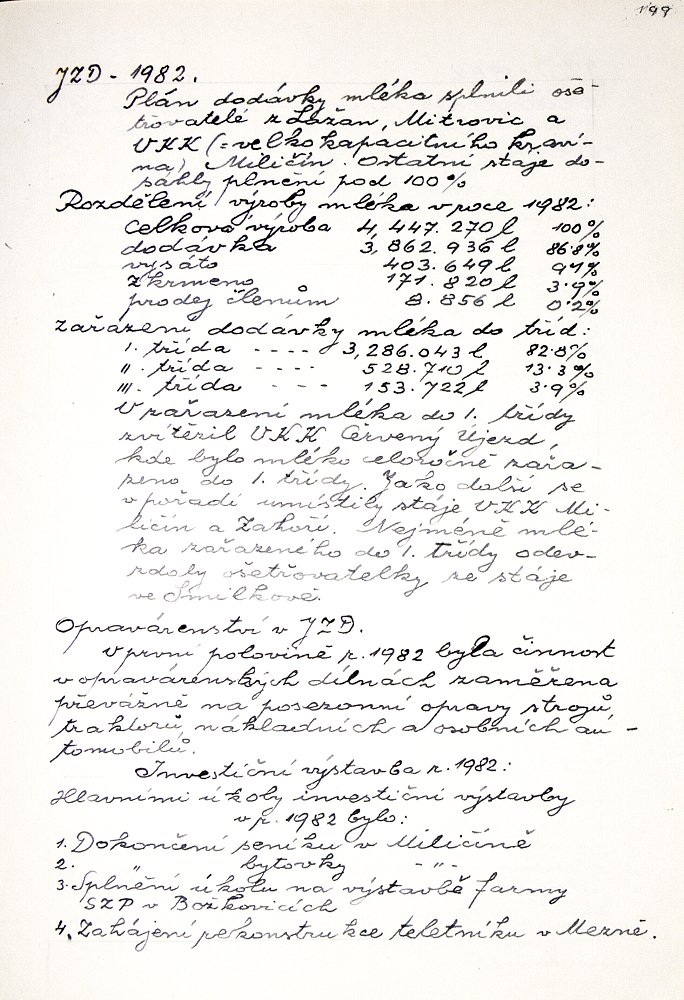 199
JZD - 1982.
Plán dodávky mléka splnili oše-
třovatelé z Lažan, Mitrovic a
VKK (= velkokapacitního kraví-
na) Miličín. Ostatní stáje do-
sáhly plnění pod 100%
Rozdělení výroby mléka v roce 1982:
celková výroba 4,447.270 l 100%
dodávka 3,862.936 l 86.8%
vysáto 403.649 l 9.1%
zkrmeno 171.820 l 3.9%
prodej členům 8.856 l 0.2%
Zařazení dodávky mléka do tříd:
I. třída - - - - 3,286.043 l 82.8%
II. třída - - - - 528.710 l 13.3%
III. třída - - - 153.722 l 3.9%
V zařazení mléka do I. třídy
zvítězil VKK Červený Újezd,
kde bylo mléko celoročně zařa-
zeno do I. třídy. Jako další se
v pořadí umístily stáje VKK Mi-
ličín a Zahoří. Nejméně mlé-
ka zařazeného do I. třídy odev-
zdaly ošetřovatelky ze stáje
ve Smilkově.
Opravárenství v JZD.
V první polovině r. 1982 byla činnost
v opravárenských dílnách zaměřena
převážně na posezonní opravy strojů,
traktorů, nákladních a osobních au-
tomobilů.
Investiční výstavba r. 1982:
Hlavními úkoly investiční výstavby
v r. 1982 bylo:
1. Dokončení seníku v Miličíně
2. " bytovky - " -
3. Splnění úkolu na výstavbě farmy
SZP v Božkovicích
4. Zahájení rekonstrukce teletníku v Mezně.